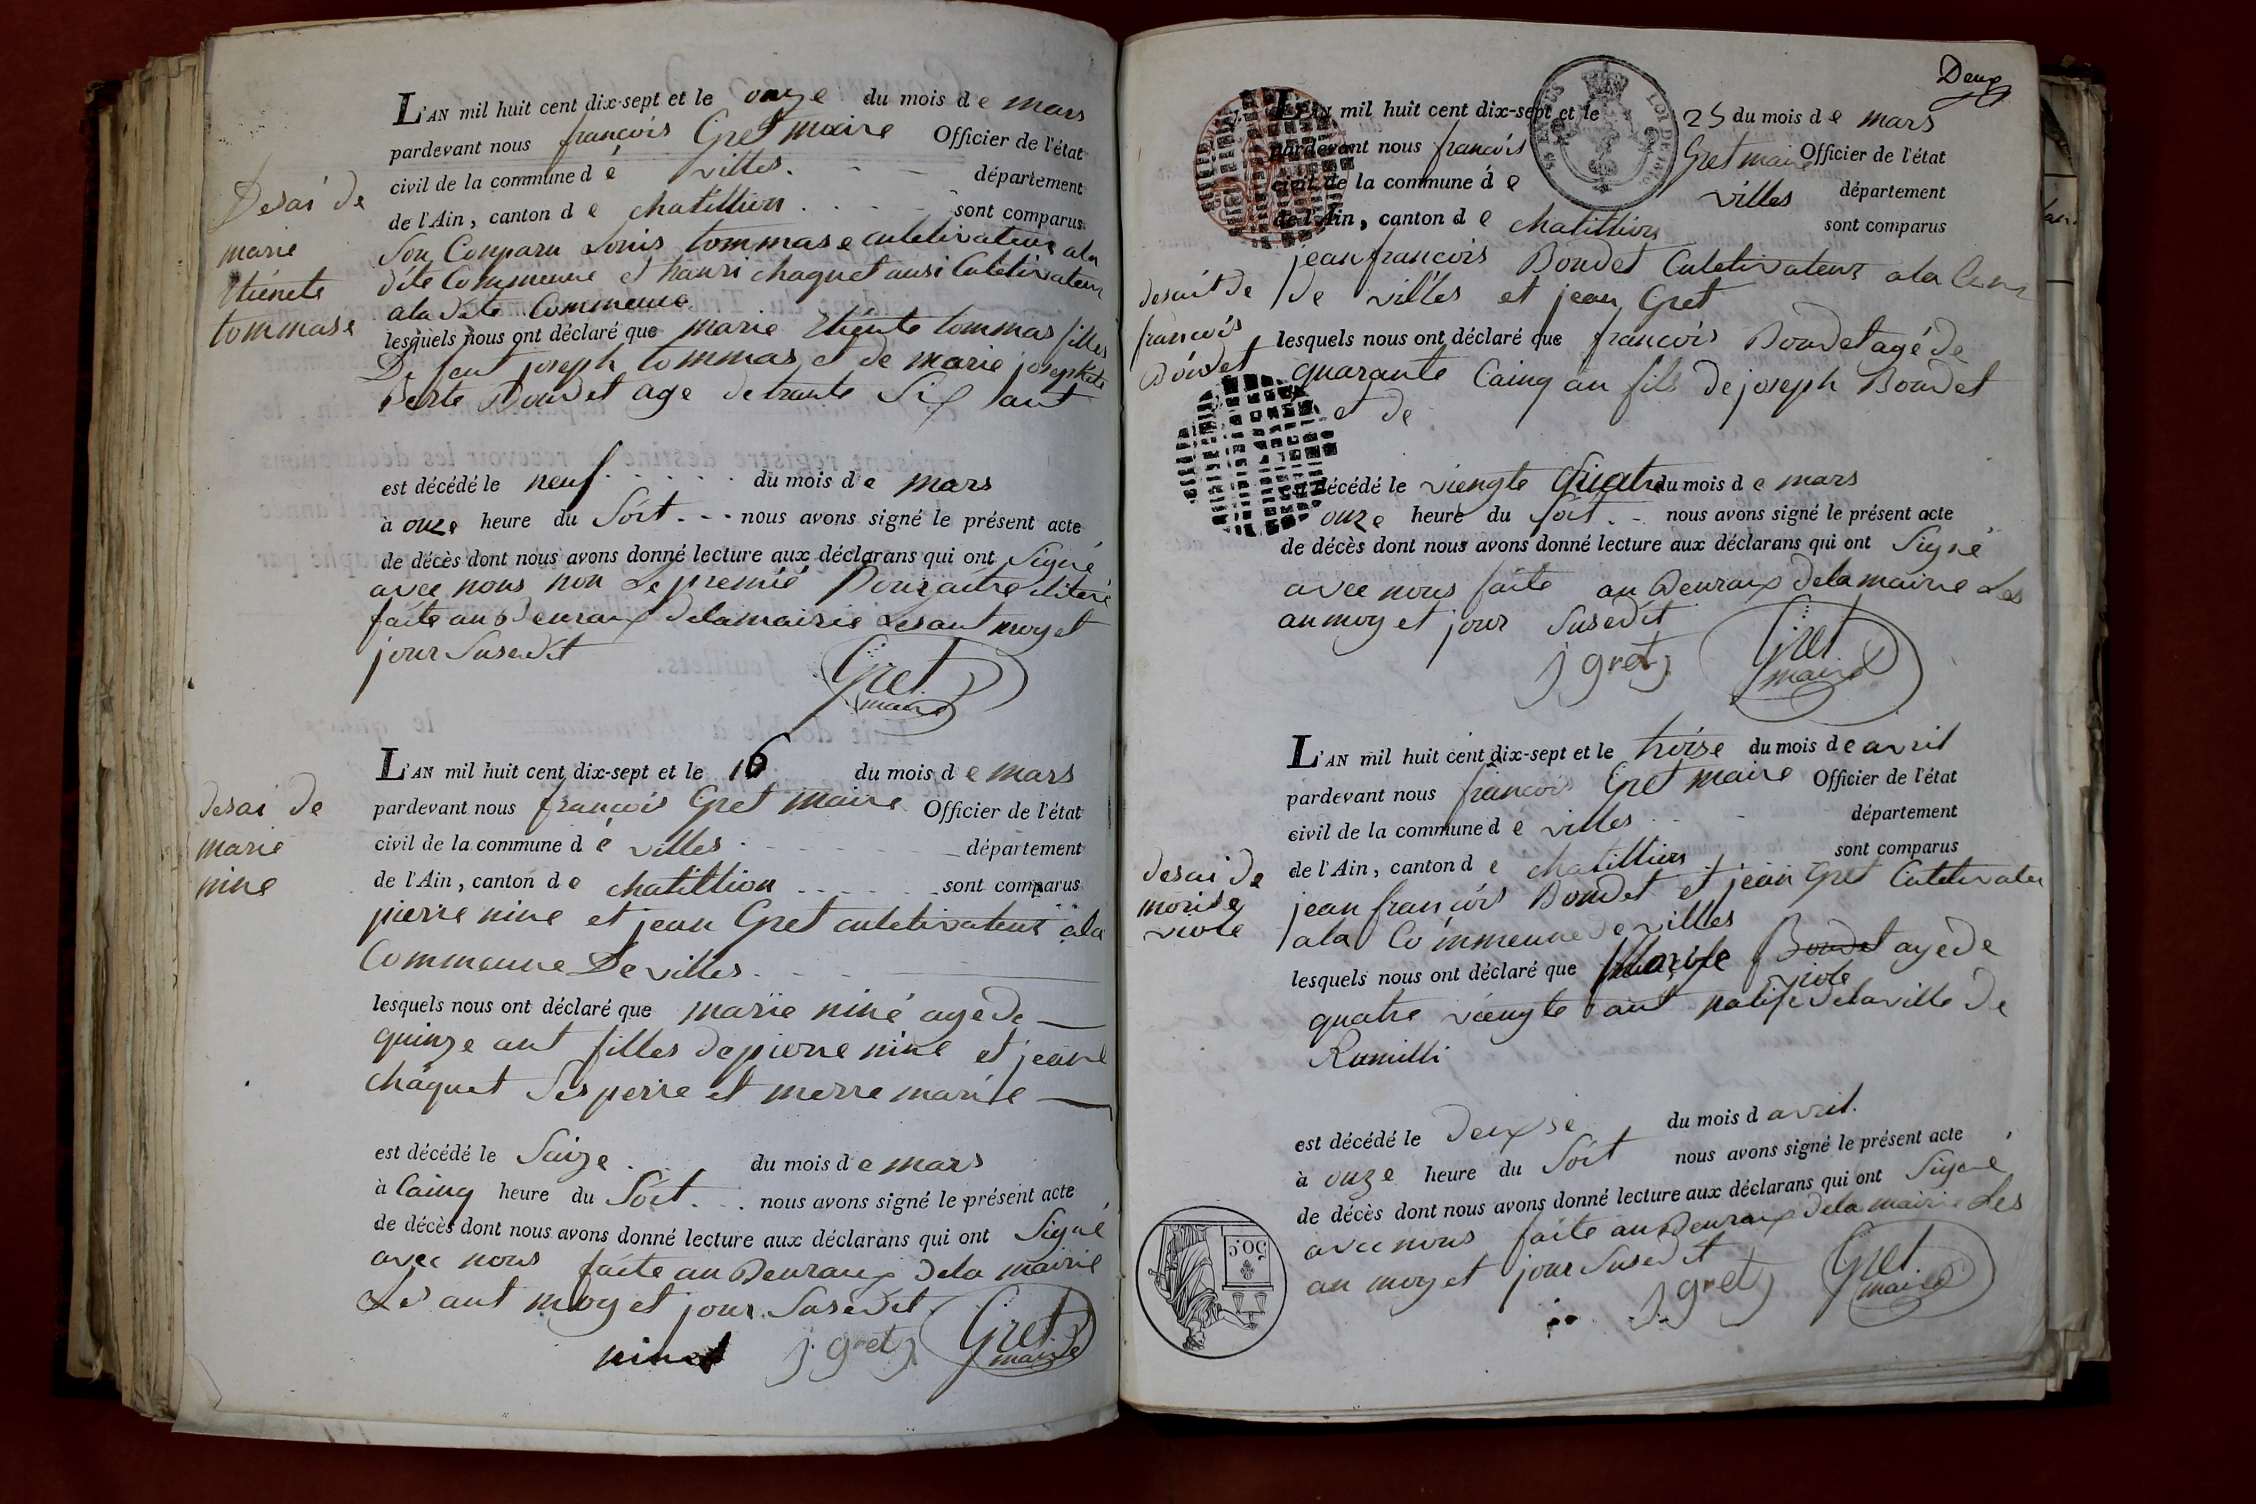 L'AN mil huit cent dix-sept et le onze du mois de mars
pardevant nous françois Gret maire Officier de l'état
civil de la commune dé villes. département
de l'Ain, canton de chatillion sont comparus
Son Conparu Louis tommase culetivateur ala
dite Commeune et hanri chaquet ausi Culetivateur
ala dite Commeune
lesquels nous ont déclaré que marie etiénte tommas filles
De feut joseph tommas et de marie josephete
Berte Boudet age de trante Six ant
est décédé le neuf du mois de mars
à onze heure du Soit nous avons signé le présent acte
de décès dont nous avons donné lecture aux déclarans qui ont Signé
avec nous non Le premié Pour aitre iliteré
faite au Beuraux dela mairie Les ant moy et
jour Susedit
Gret
maire
Desai de
marie
Etiénete
tommase
L'AN mil huit cent dix-sept et le 16 du mois de mars
pardevant nous françois Gret maire Officier de l'état
civil de la commune dé villes département
de l'Ain, canton de chatillion sont comparus
pierre nine et jean Gret culetivateur ala
Commeune De villes
lesquels nous ont déclaré que marie niné age de
quinze ant filles de pierre nine et jeane
chaquet Ses perre et merre marié
est décédé le Saize du mois de mars
à Cainq heure du Soit nous avons signé le présent acte
de décès dont nous avons donné lecture aux déclarans qui ont Signé
avec nous faite au Beuraux dela mairie
Les ant moy et jour Susedit
ninet j gret Gret
maire
desai de
marie
nine
Deux
L'AN mil huit cent dix-sept et le 25 du mois de mars
pardevant nous françois Gret maire Officier de l'état
civil de la commune dé villes département
de l'Ain, canton de chatillion sont comparus
jean françois Boudet Culetivateur ala
de villes et jean Gret
lesquels nous ont déclaré que françois Boudet agé de
quarante Cainq an fils de joseph Boudet
et de
décédé le viengte Quatre du mois de mars
onze heure du Soit nous avons signé le présent acte
de décès dont nous avons donné lecture aux déclarans qui ont Signé
avec nous faite au Beuraux dela mairie Les
an moy et jour Susedit
j gret Gret
maire
desait de
françois
Boudet
LOI DE 1816
L'AN mil huit cent dix-sept et le troise du mois de avril
pardevant nous françois Gret maire Officier de l'état
civil de la commune de villes département
de l'Ain, canton de chatillion sont comparus
jean françois Boudet et jean Gret Culetivateur
ala Commeune de villes
lesquels nous ont déclaré que Morise Boudet age de
viole
quatre viengte ant natife dela ville de
Rumilli
est décédé le deuxse du mois d avril.
à onze heure du Soit nous avons signé le présent acte
de décès dont nous avons donné lecture aux déclarans qui ont Signé
avec nous faite au Beuraux dela mairie Les
an moy et jour Susedit
j gret Gret
maire
desai de
morise
viole
50C.